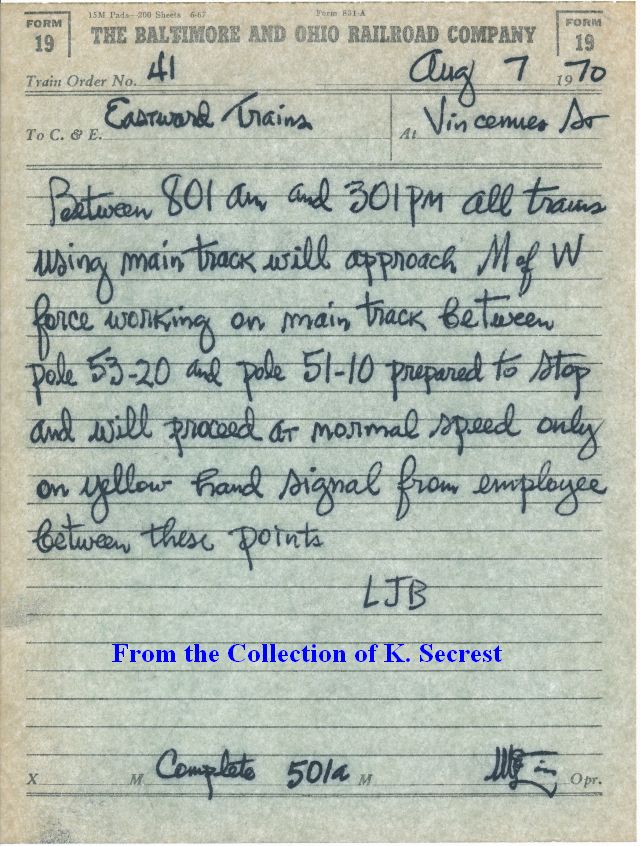 15M Pads—200 Sheets 6-67 Form 831-A
FORM 19 THE BALTIMORE AND OHIO RAILROAD COMPANY FORM 19
Train Order No. 41 Aug 7 1970
To C. & E. Eastward Trains At Vincennes St
Between 801 am and 301 PM all trains
using main track will approach M of W
force working on main track between
pole 53-20 and pole 51-10 prepared to stop
and will proceed at normal speed only
on yellow hand signal from employee
between these points
LJB
From the Collection of K. Secrest
X M Complete 501a M Opr.